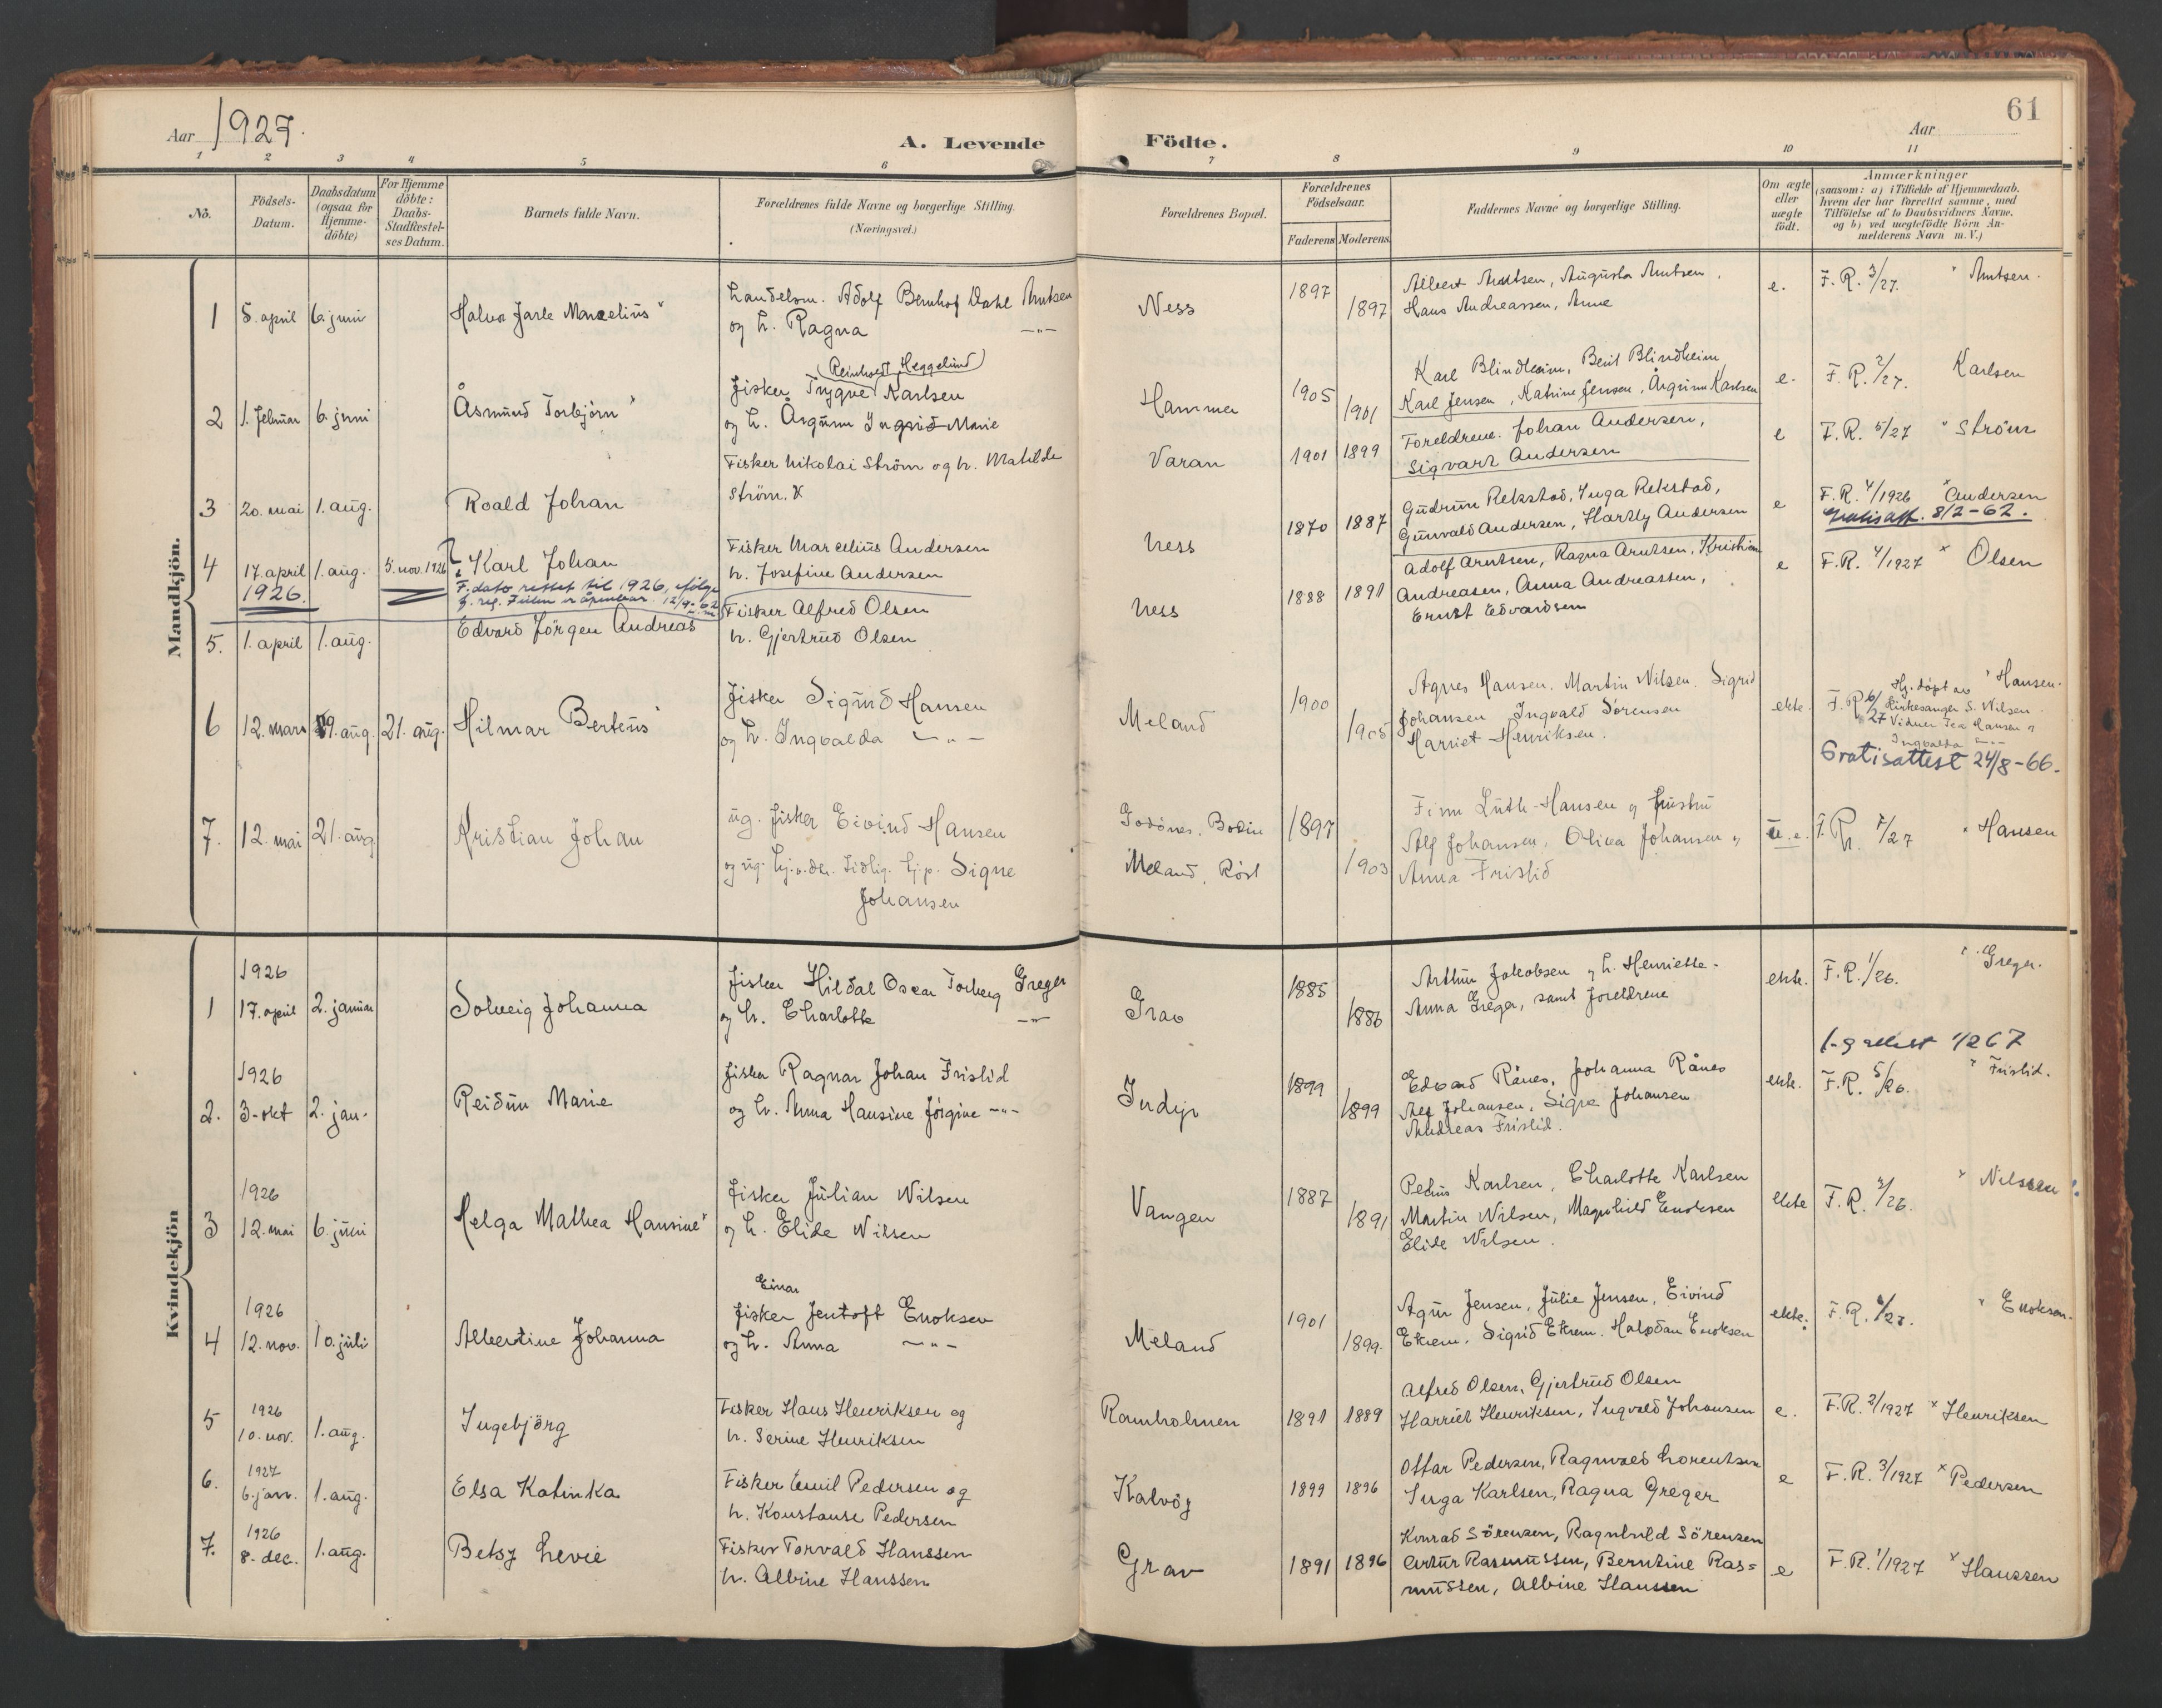 Aar 1927.
A. Levende Födte.
Aar
61
1 2 3 4 5 6 7 8 9 10 11
No.
Födsels-
Datum.
Daabsdatum
(ogsaa for
Hjemme-
döbte)
For Hjemme
döbte:
Daabs-
Stadfestel-
ses Datum.
Barnets fulde Navn.
Forældrenes fulde Navne og borgerlige Stilling.
(Næringsvei.)
Forældrenes Bopæl.
Forældrenes
Födselsaar.
Faderens Moderens
Faddernes Navne og borgerlige Stilling.
Om ægte
eller
uægte
födt.
Anmærkninger
(saasom: a) i Tilfælde af Hjemmedaab.
hvem der har forrettet samme, med
Tilföielse af to Daabsvidners Navne.
og b) ved uegtefödte Börn An-
melderens Navn m. V.)
Mandkjön.
1 5. april 6. juni
Halvor Jarle Marcelius
Handelsm. Adolf Bernhof Dahl Arntsen
og h. Ragna —"—
Ness
1897
1897
Albert Arntsen, Augusta Arntsen,
Hans Andreassen, Anne
e.
F. R. 3/27. Arntsen.
2 1. februar 6. juni
Åsmund Torbjörn
(Reinholdt Heggelund)
Fisker Trygve Karlsen
og h. Årgunn Ingrid Marie
Hammer
1905
1901
Karl Blindheim, Berit Blindheim,
Karl Jensen, Katrine Jensen, Årgunn Karlsen
e.
F. R. 2/27. Karlsen
3 20. mai 1. aug.
Roald Johan
Fisker Nikolai Ström og h. Matilde
Ström.
Varan
1901 1899
Foreldrene. Johan Andersen,
Sigvart Andersen
e
F. R. 5/27 Ström
4 17. april 1. aug. 5. nov. 1926
1926.
Karl Johan
F. dato rettet til 1926, ifølge
Fisker Marcelius Andersen
h. Josefine Andersen
Ness
1870 1887
Gudrun Rekstad, Inga Rekstad,
Gunvald Andersen, Hartly Andersen
e
F. R. 4/1926 Andersen
Gratisatt. 8/2-62.
5. 1. april 1. aug.
Edvard Jörgen Andreas
Fisker Alfred Olsen
h. Gjertrud Olsen
Ness
1888 1891
Adolf Arntsen, Ragna Arntsen, Kristian
Andreasen, Anna Andreassen,
Ernst Edvardsen
e
F. R. 4/1927 Olsen
6 12. mars 19. aug. 21. aug.
Hilmar Berteus
Fisker Sigurd Hansen
og h. Ingvalda —"—
Meland
1900
1905
Agnes Hansen. Martin Nilsen. Sigrid
Johansen Ingvald Sörensen
Harriet Henriksen.
ekte.
F. R. 6/27 Hj. döpt av Hansen.
Kirkesanger S. Nilsen
Vidner Tea Hansen og
Ingvalda —"—
Gratisattest 24/8-66.
7. 12. mai 21. aug
Kristian Johan
ug. fisker Eivind Hansen
og ug. Signe
Johansen
Godönes, Bodin
Meland, Röst
1897
1903
Finn Lüth-Hansen og frustru
Alf Johansen, Olivea Johansen og
Anna Fristid
u. e.
F. R. 7/27 Hansen
Kvindekjön
1926
1 17. april 2. januar
Solveig Johanna
Fisker Hildal Oscar Torberg Greger
og h. Charlotte —"—
Grav
1885
1886
Arthur Jakobsen og h. Henriette.
Anna Greger, samt foreldrene
ekte.
F. R. 1/26. Greger.
1926
2. 3. okt 2. jan.
Reidun Marie
Fisker Ragnar Johan Fristid
og h. Anna Hansine Jörgine —"—
Indyr
1899
1899
Edvard Rånes, Johanna Rånes
Alf Johansen, Signe Johansen
Andreas Fristid.
ekte.
F. R. 5/26. Fristid.
1926
3 12. mai 6. juni
Helga Mathea Hansine
Fisker Julian Nilsen
og h. Elide Nilsen
Vangen
1887
1891
Petrus Karlsen, Charlotte Karlsen
Martin Nilsen, Magnhild Enoksen
Elide Nilsen.
ekte
F. R. 3/26. Nilssen
1926
4 12. nov. 10. juli
Albertine Johanna
Einar
Fisker Jentoft Enoksen
og h. Anna —"—
Meland
1901
1899.
Agur Jensen, Julie Jensen, Eivind
Ekrem, Sigrid Ekrem. Halvdan Enoksen
ekte.
F. R. 6/27. Enoksen.
1926
5 10. nov. 1. aug.
Ingebjörg
Fisker Hans Henriksen og
h. Serine Henriksen
Ramholmen
1891 1889
Alfred Olsen, Gjertrud Olsen
Harriet Henriksen, Ingvald Johansen
e.
F. R. 2/1927 Henriksen
1927
6. 6. jan. 1. aug.
Elsa Katinka
Fisker Emil Pedersen og
h. Konstanse Pedersen
Kalvöy
1899 1896
Ottar Pedersen, Ragnvald Lorentsen
Inga Karlsen, Ragna Greger
e
F. R. 3/1927 Pedersen
1926
7. 8. dec. 1. aug.
Betsy Levie
Fisker Torvald Hanssen
h. Albine Hanssen
Grav
1891 1896
Konrad Sörensen, Ragnhild Sörensen
Artur Rasmussen, Berntine Ras=
mussen, Albine Hanssen
e
F. R. 1/1927 Hanssen